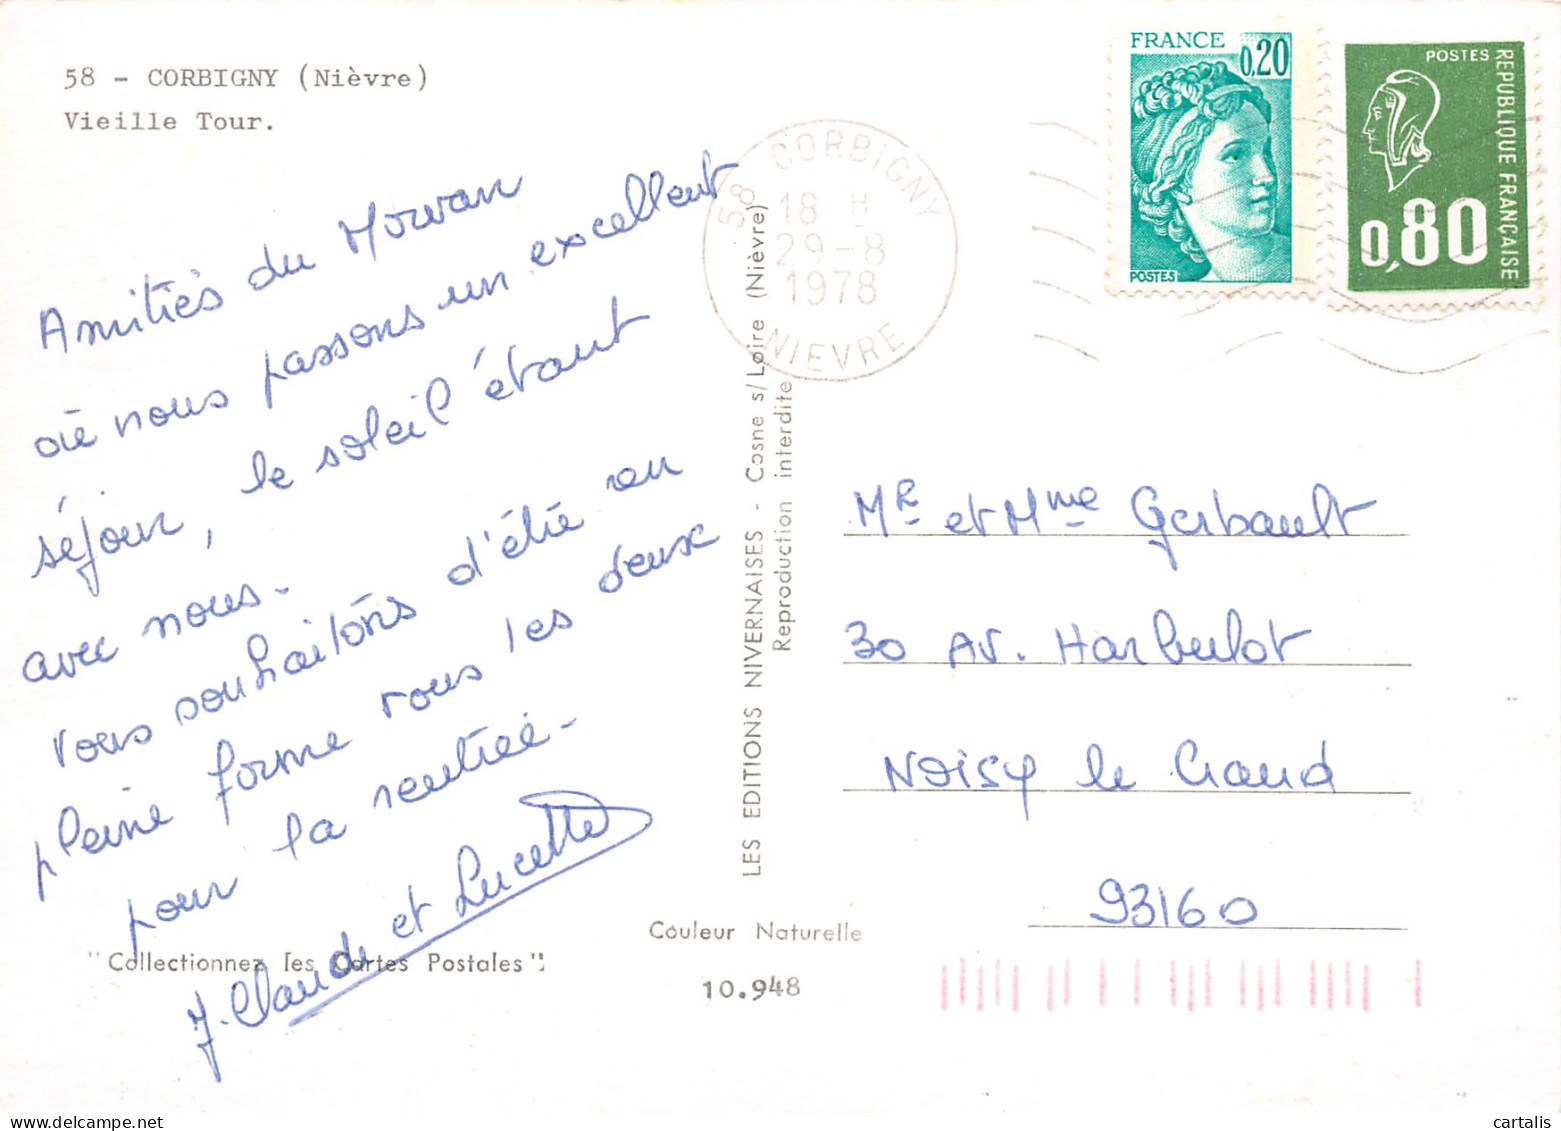 58 - CORBIGNY (Nièvre)
Vieille Tour.
Amitiés du Morvan
où nous passons un excellent
séjour, le soleil étant
avec nous.
Vous souhaitons d'être en
pleine forme tous les deux
pour la rentrée.
J. Claude et Lucette
"Collectionnez les Cartes Postales"
LES EDITIONS NIVERNAISES - Cosne s/Loire (Nièvre)
Reproduction interdite
Couleur Naturelle
10.948
58 CORBIGNY
18 H
29-8
1978
NIEVRE
FRANCE
0,20
POSTES
POSTES
REPUBLIQUE FRANÇAISE
0,80
MR et Mme Gerbault
30 Av. Harbulot
Noisy le Grand
93160
cartalis